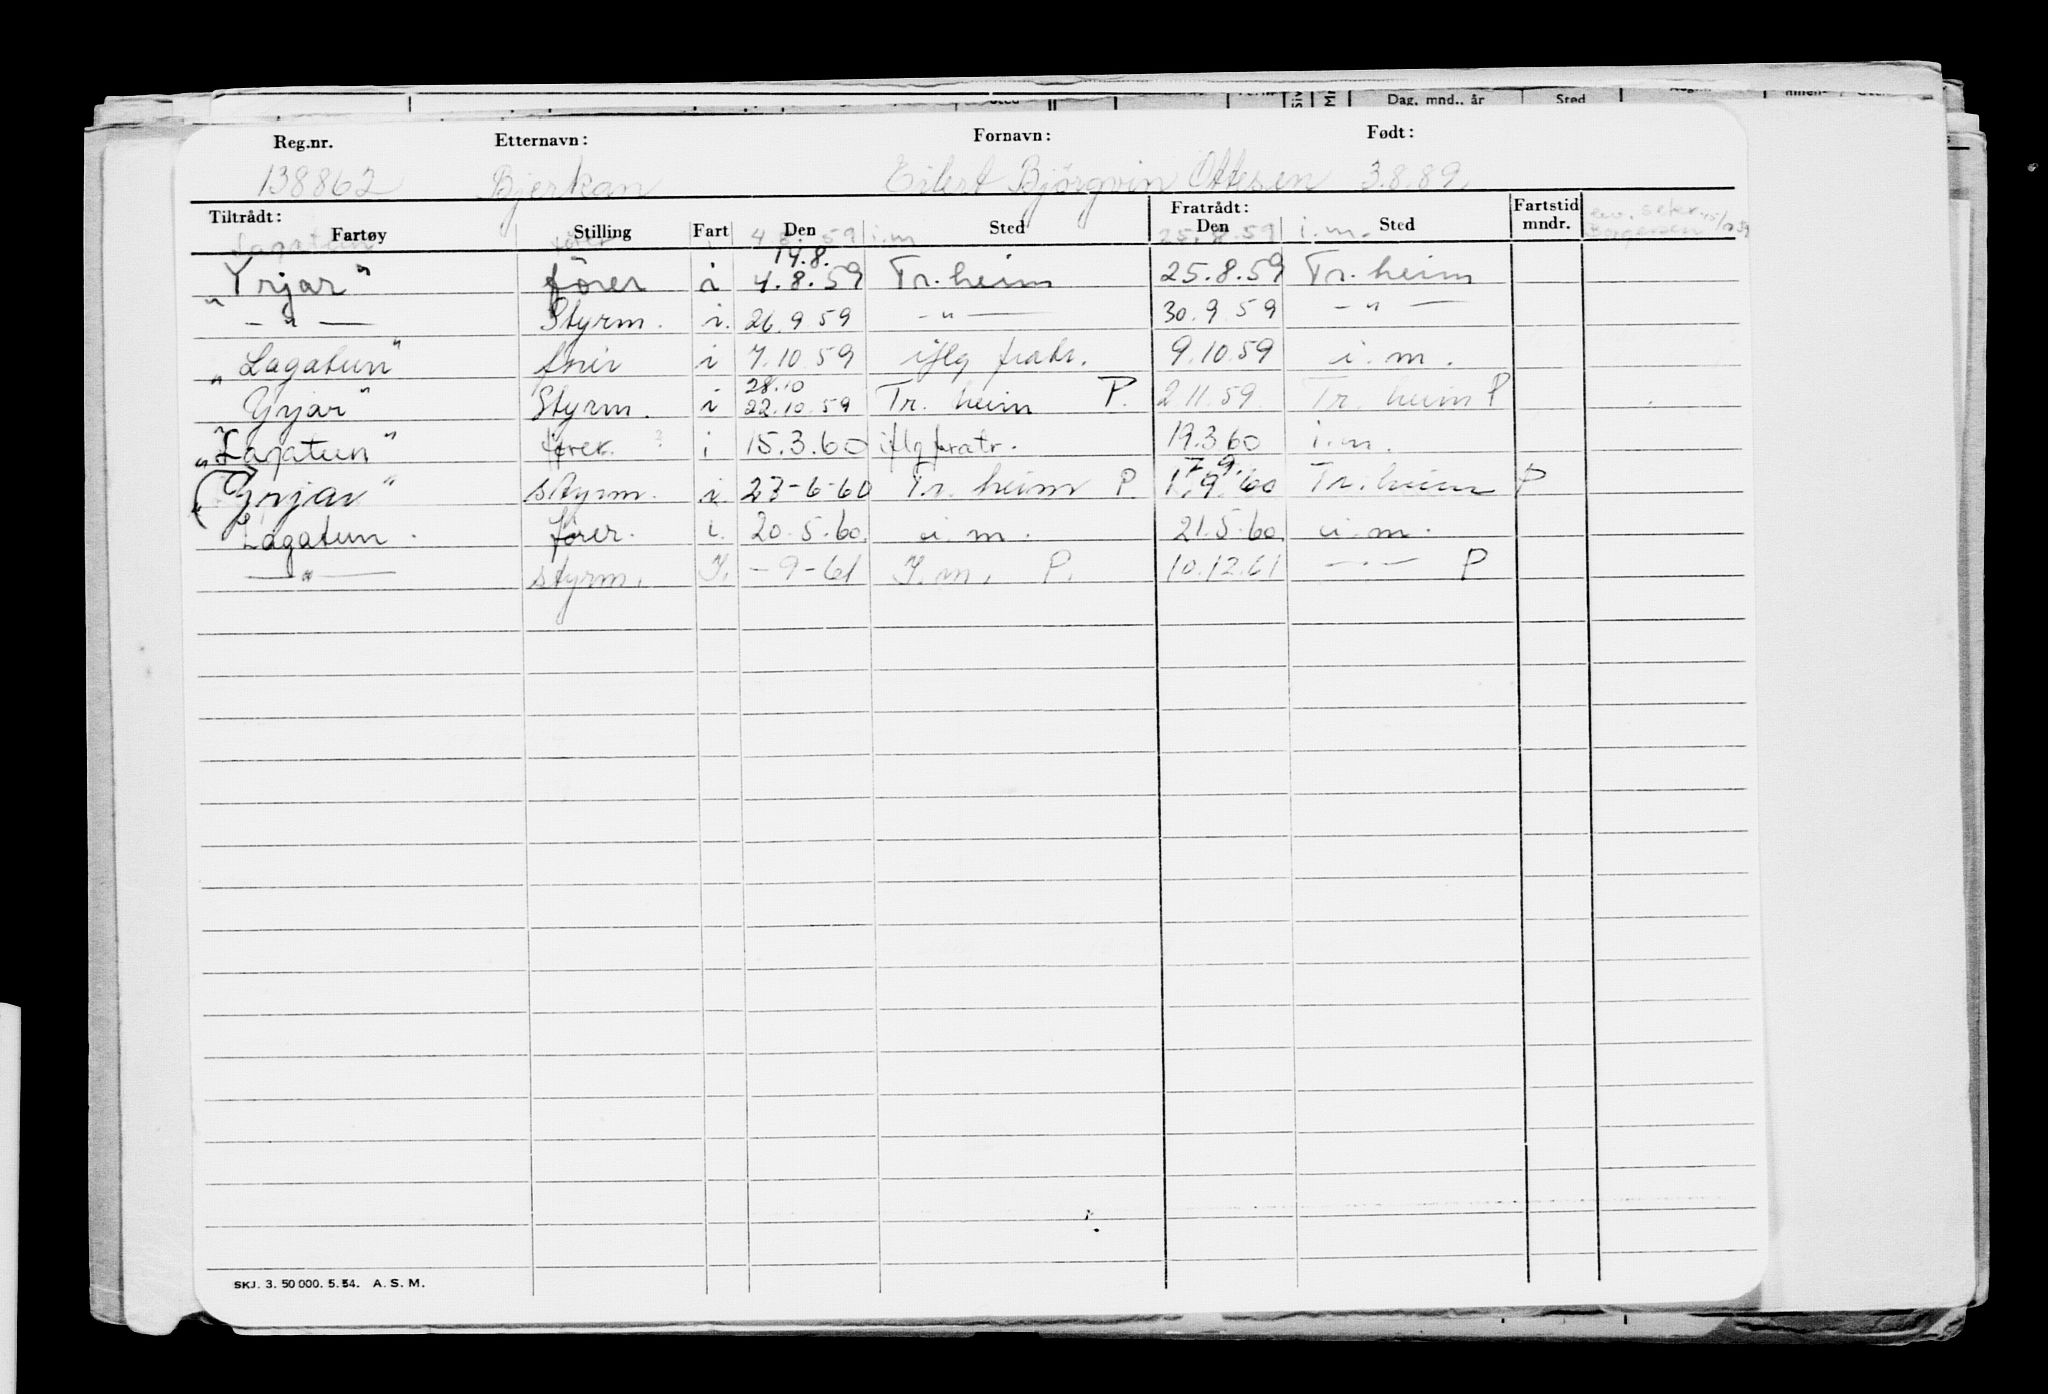 Dag, mnd., år Sted
Reg.nr. Etternavn: Fornavn: Født:
138862 Bjerkan Eilert Björgvin Ottesen 3.8.89.
Tiltrådt: Fratrådt: Fartstid
Fartøy Stilling Fart Den Sted Den Sted mndr.
Lagatun fører i 4.8.59 i.m 25.8.59 i.m.
14.8.
"Yrjar" fører i 4.8.59 Tr.heim 25.8.59 Tr.heim
— " — Styrm. i. 26.9.59 — " — 30.9.59 — " —
"Lagatun" i 7.10.59 iflg fratr. 9.10.59 i.m.
28.10
"Yrjar" Styrm. i 22.10.59 Tr. heim P. 2.11.59 Tr. heim P
"Lagatun" fører. ? i 15.3.60 iflg fratr. 19.3.60 i.m.
"Yrjar" styrm. i 27-6-60 Tr. heim P. 1.9.60 Tr. heim P
Lagatun. fører. i. 20.5.60. i.m. 21.5.60. i.m.
— " — styrm. I. -9-61 I.m. P. 10.12.61 — " — P
SKJ. 3. 50 000. 5. 54. A. S. M.